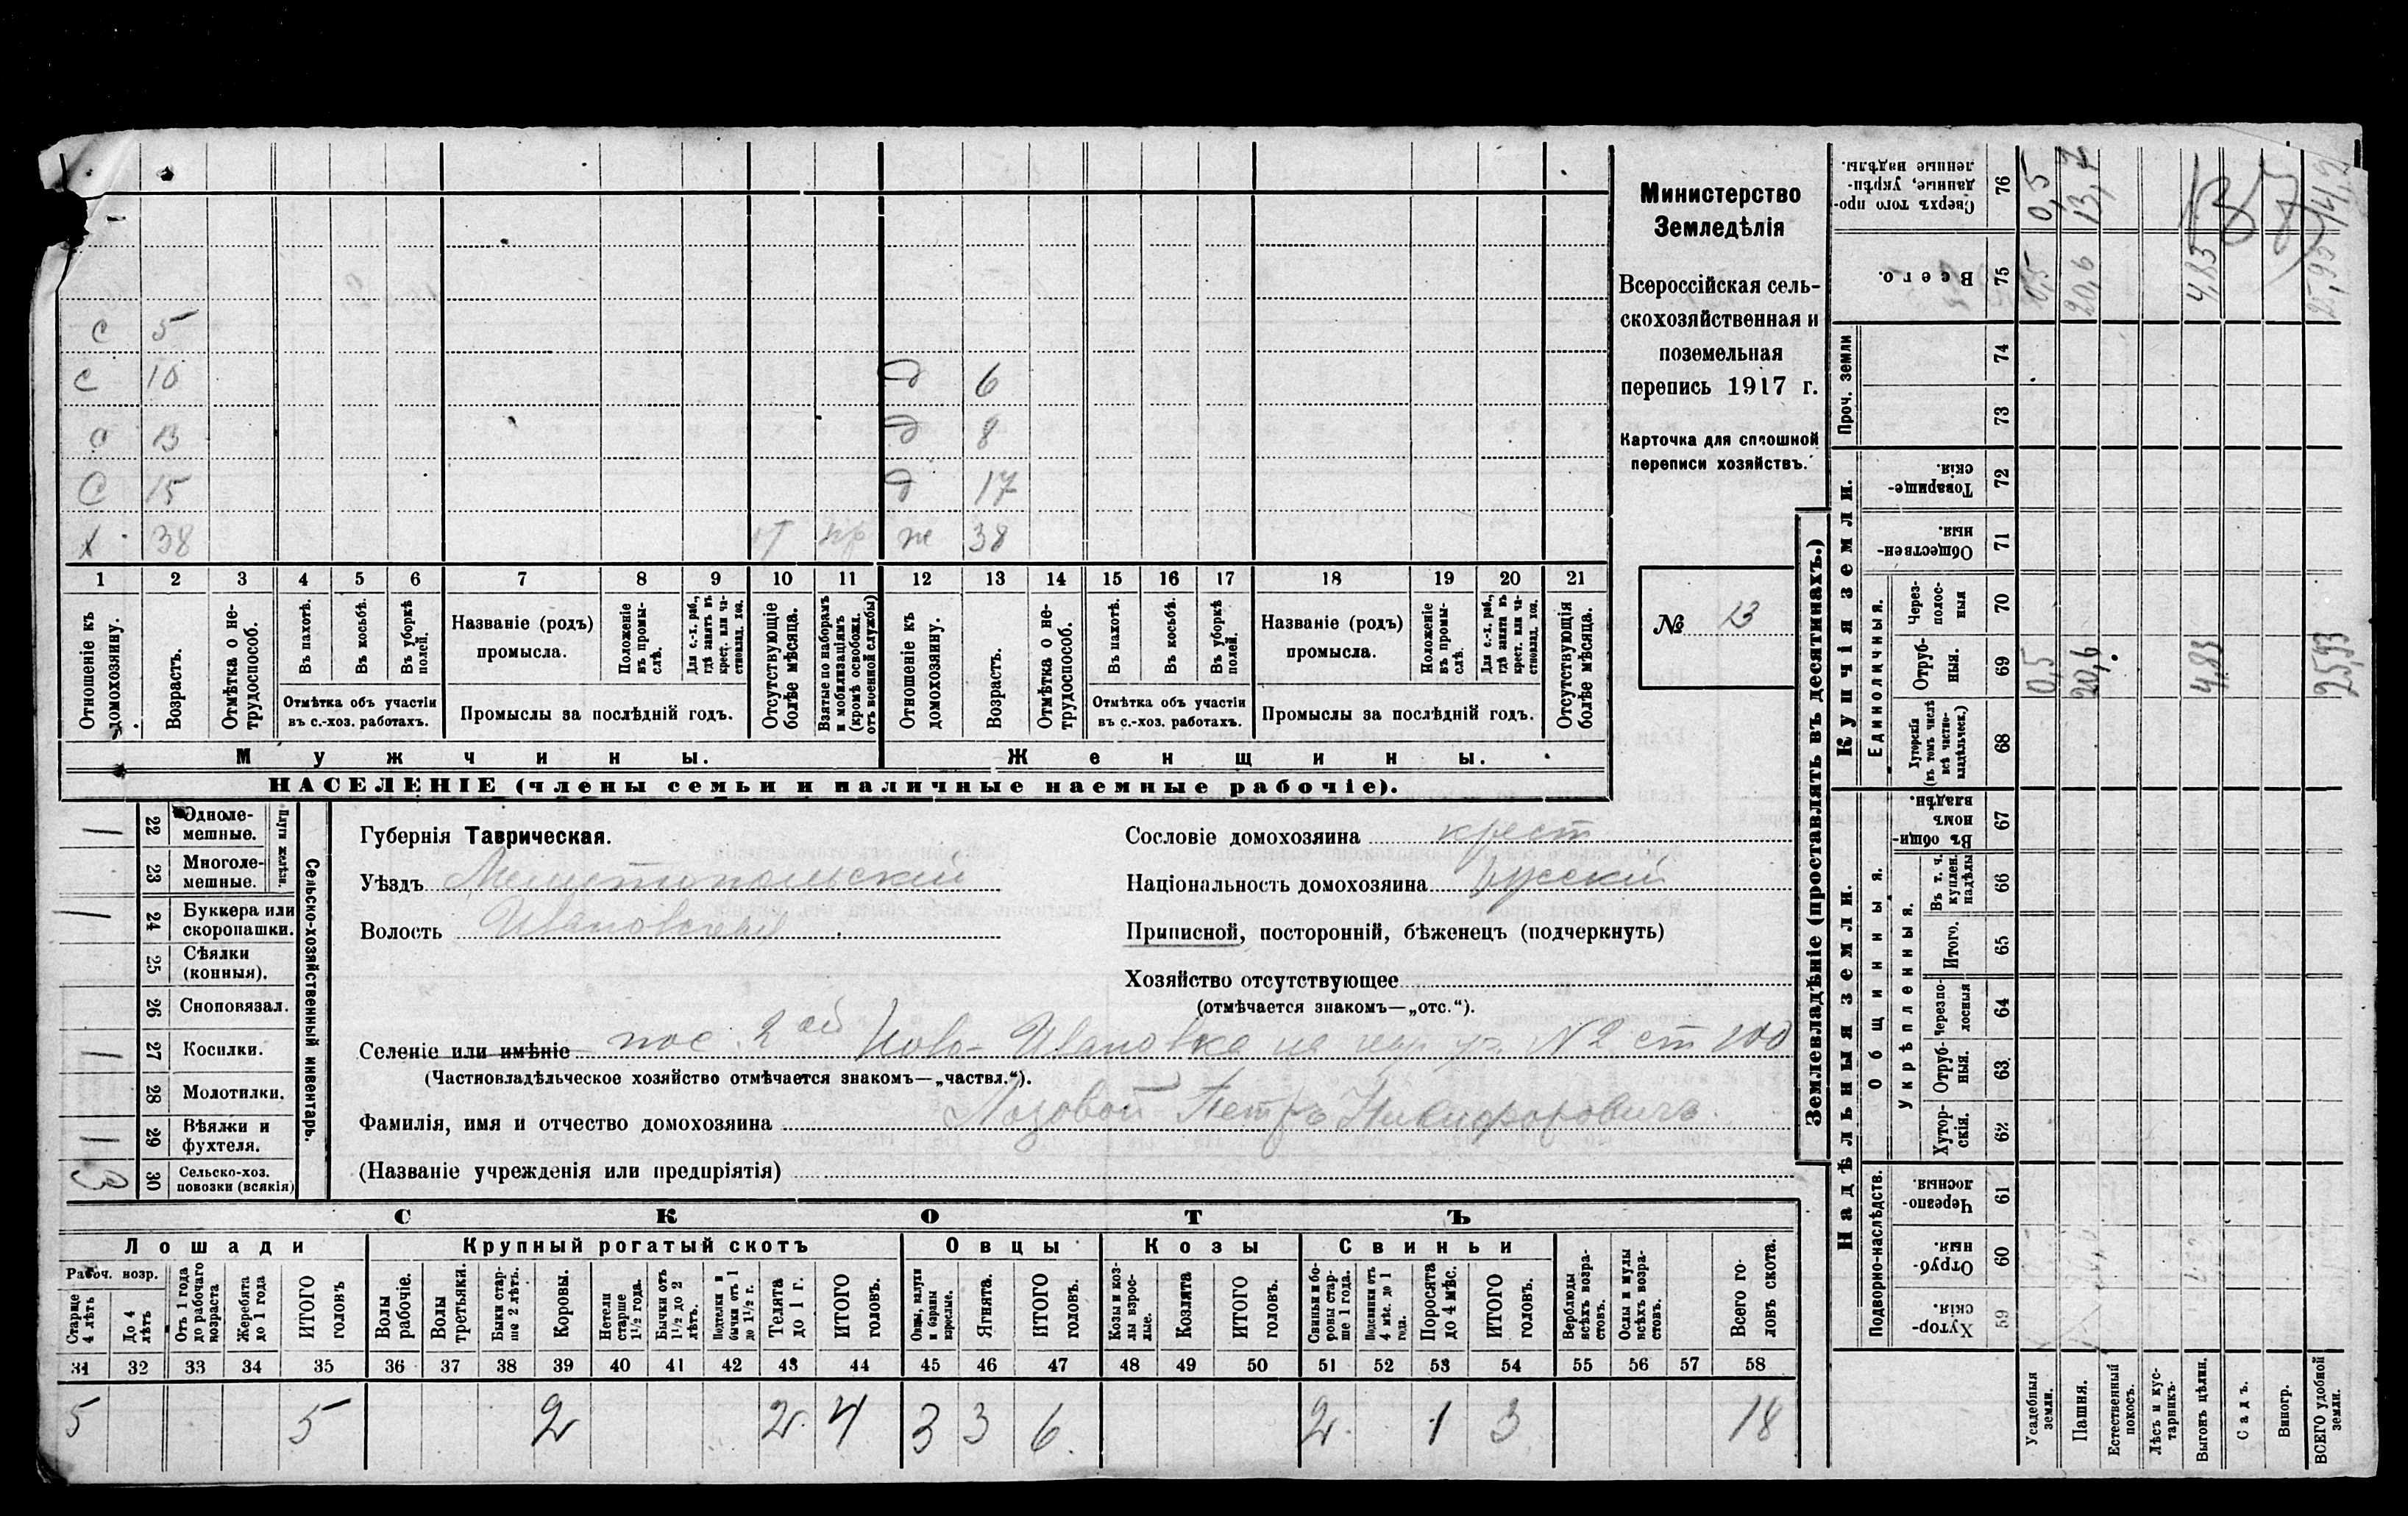 С 5
С 10 Д 6
С 13 Д 8
С 15 Д 17
Х 38 от пр ж 38
1 2 3 4 5 6 7 8 9 10 11 12 13 14 15 16 17 18 19 20 21
Отношеніе къ домохозяину.
Возрастъ.
Отмѣтка о не-трудоспособ.
Въ пахотѣ.
Въ косьбѣ.
Въ уборкѣ полей.
Отмѣтка объ участіи въ с.-хоз. работахъ.
Названіе (родъ) промысла.
Положеніе въ промы-слѣ.
Для с.-х. раб., гдѣ занятъ въ крест. или ча-стновлад. хоз.
Промыслы за послѣдній годъ.
Отсутствующіе болѣе мѣсяца.
Взятые по наборамъ и мобилизаціямъ (кромѣ освобожд. отъ военной службы)
Отношеніе къ домохозяину.
Возрастъ.
Отмѣтка о не-трудоспособ.
Въ пахотѣ.
Въ косьбѣ.
Въ уборкѣ полей.
Отмѣтка объ участіи въ с.-хоз. работахъ.
Названіе (родъ) промысла.
Положеніе въ промы-слѣ.
Для с.-х. раб., гдѣ занята въ крест. или ча-стновлад. хоз.
Промыслы за послѣдній годъ.
Отсутствующія болѣе мѣсяца.
Мужчины. Женщины.
НАСЕЛЕНІЕ (члены семьи и наличные наемные рабочіе).
Министерство
Земледѣлія
Всероссійская сель-
скохозяйственная и
поземельная
перепись 1917 г.
Карточка для сплошной
переписи хозяйствъ.
№ 13
Сельско-хозяйственный инвентарь.
Плуги желѣзн.
1 22 Одноле-мешные.
23 Многоле-мешные.
1 24 Буккера или скоропашки.
25 Сѣялки (конныя).
26 Сноповязал.
1 27 Косилки.
28 Молотилки.
1 29 Вѣялки и фухтеля.
30 Сельско-хоз. повозки (всякія)
Губернія Таврическая.
Уѣздъ Мелитопольскій
Волость Ивановская
Сословіе домохозяина крест
Національность домохозяина русскій
Приписной, посторонній, бѣженецъ (подчеркнуть)
Хозяйство отсутствующее
(отмѣчается знакомъ—„отс.“).
Селеніе или имѣніе пос. 2ой Ново-Ивановка на уч. № 2 ст 100
(Частновладѣльческое хозяйство отмѣчается знакомъ—„частвл.“).
Фамилія, имя и отчество домохозяина Лозовой Петръ Никифоровичъ
(Названіе учрежденія или предпріятія)
СКОТЪ
Лошади Крупный рогатый скотъ Овцы Козы Свиньи
Рабоч. возр.
Старше 4 лѣтъ
До 4 лѣтъ
Отъ 1 года до рабочаго возраста
Жеребята до 1 года
ИТОГО головъ
Волы рабочіе.
Волы третьяки.
Быки стар-ше 2 лѣтъ.
Коровы.
Нетели старше 1½ года.
Бычки отъ 1½ до 2 лѣтъ.
Подтелки и бычки отъ 1 до 1½ г.
Телята до 1 г.
ИТОГО головъ.
Овцы, валухи и бараны взрослые.
Ягнята.
ИТОГО головъ.
Козы и коз-лы взрос-лые.
Козлята
ИТОГО головъ.
Свиньи и бо-ровы стар-ше 1 года.
Подсвинки отъ 4 мѣс. до 1 года.
Поросята до 4 мѣс.
ИТОГО головъ.
Верблюды всѣхъ возра-стовъ.
Ослы и мулы всѣхъ возра-стовъ.
Всего го-ловъ скота.
31 32 33 34 35 36 37 38 39 40 41 42 43 44 45 46 47 48 49 50 51 52 53 54 55 56 57 58
5 5 2 2 4 3 3 6 2 1 3 18
Землевладѣніе (проставлять въ десятинахъ.)
Надѣльныя земли. Купчія земли. Проч. земли
Подворно-наслѣдств. Общинныя. Единоличныя.
Укрѣпленныя.
59 Хутор-скія.
60 Отруб-ныя.
61 Черезпо-лосныя.
62 Хутор-скія.
63 Отруб-ныя.
64 Черезпо-лосныя
65 Итого.
66 Въ т. ч. куплен. надѣлы
67 Въ общин-номъ владѣн.
68 Хуторскія (въ томъ числѣ всѣ частно-владѣльческ.)
69 Отруб-ныя.
70 Через-полос-ныя
71 Обществен-ныя.
72 Товарище-скія.
73
74
75 Всего.
76 Сверхъ того про-данные, укрѣп-ленные надѣлы.
Усадебныя земли. 0,5 0,5 0,5
Пашня. 20,6 20,6 13,7
Естественный покосъ.
Лѣсъ и кус-тарникъ.
Выгонъ цѣлин. 4,83 4,83
Садъ.
Виногр.
ВСЕГО удобной земли. 25,93 25,93 14,2